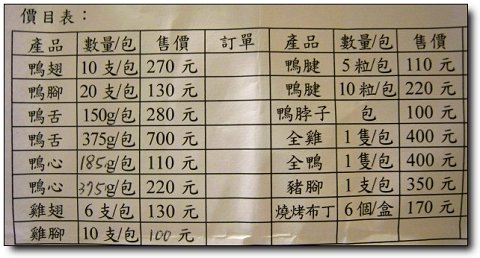 價目表：
產品 數量/包 售價 訂單 產品 數量/包 售價
鴨翅 10支/包 270元 鴨腱 5粒/包 110元
鴨腳 20支/包 130元 鴨腱 10粒/包 220元
鴨舌 150g/包 280元 鴨脖子 包 100元
鴨舌 375g/包 700元 全雞 1隻/包 400元
鴨心 185g/包 110元 全鴨 1隻/包 400元
鴨心 375g/包 220元 豬腳 1支/包 350元
雞翅 6支/包 130元 燒烤布丁 6個/盒 170元
雞腳 10支/包 100元